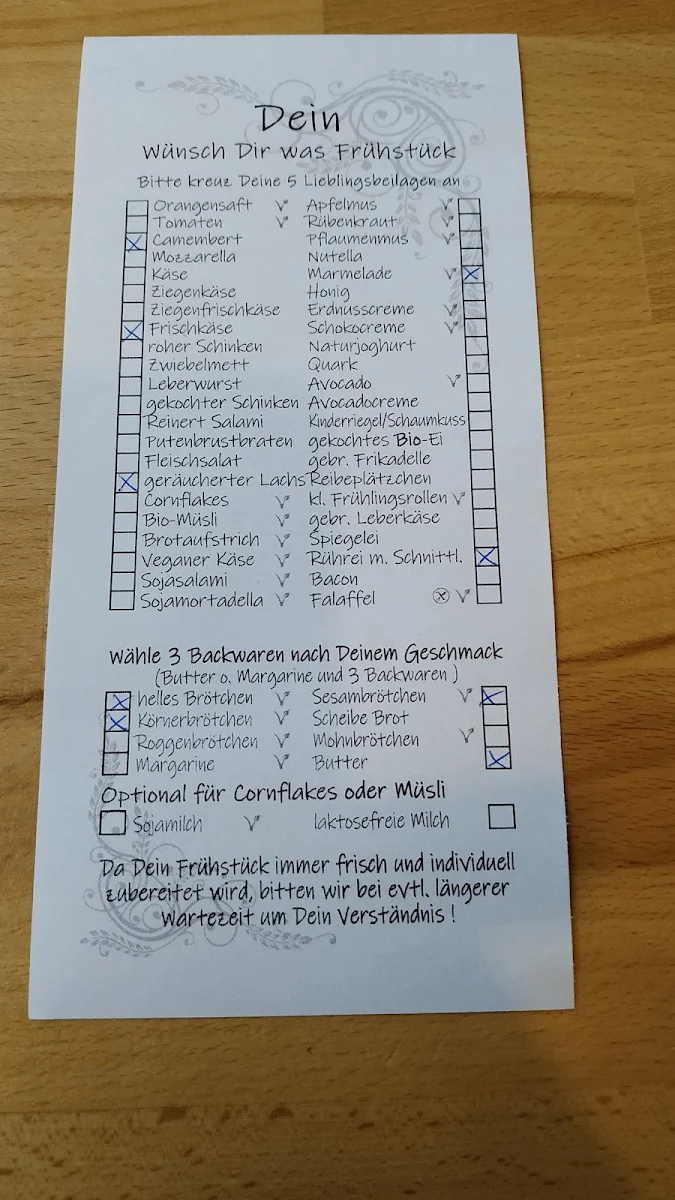 Dein
Wünsch Dir was Frühstück
Bitte kreuz Deine 5 Lieblingsbeilagen an
Orangensaft Apfelmus
Tomaten Rübenkraut
Camembert Pflaumenmus
Mozzarella Nutella
Käse Marmelade
Ziegenkäse Honig
Ziegenfrischkäse Erdnusscreme
Frischkäse Schokocreme
roher Schinken Naturjoghurt
Zwiebelmett Quark
Leberwurst Avocado
gekochter Schinken Avocadocreme
Reinert Salami Kinderriegel/Schaumkuss
Putenbrustbraten gekochtes Bio-Ei
Fleischsalat gebr. Frikadelle
geräucherter Lachs Reibeplätzchen
Cornflakes kl. Frühlingsrollen
Bio-Müsli gebr. Leberkäse
Brotaufstrich Spiegelei
Veganer Käse Rührei m. Schnittl.
Sojasalami Bacon
Sojamortadella Falaffel
Wähle 3 Backwaren nach Deinem Geschmack
(Butter o. Margarine und 3 Backwaren )
helles Brötchen Sesambrötchen
Körnerbrötchen Scheibe Brot
Roggenbrötchen Mohnbrötchen
Margarine Butter
Optional für Cornflakes oder Müsli
Sojamilch laktosefreie Milch
Da Dein Frühstück immer frisch und individuell
zubereitet wird, bitten wir bei evtl. längerer
Wartezeit um Dein Verständnis !